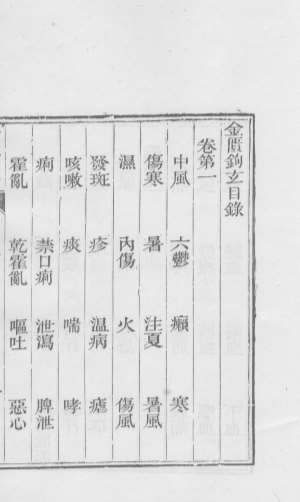 金匱鉤玄目錄
卷第一
中風 六鬱 癩 寒
傷寒 暑 注夏 暑風
濕 內傷 火 傷風
發斑 疹 溫病 瘧
咳嗽 痰 喘 哮
痢 禁口痢 泄瀉 脾泄
霍亂 乾霍亂 嘔吐 惡心